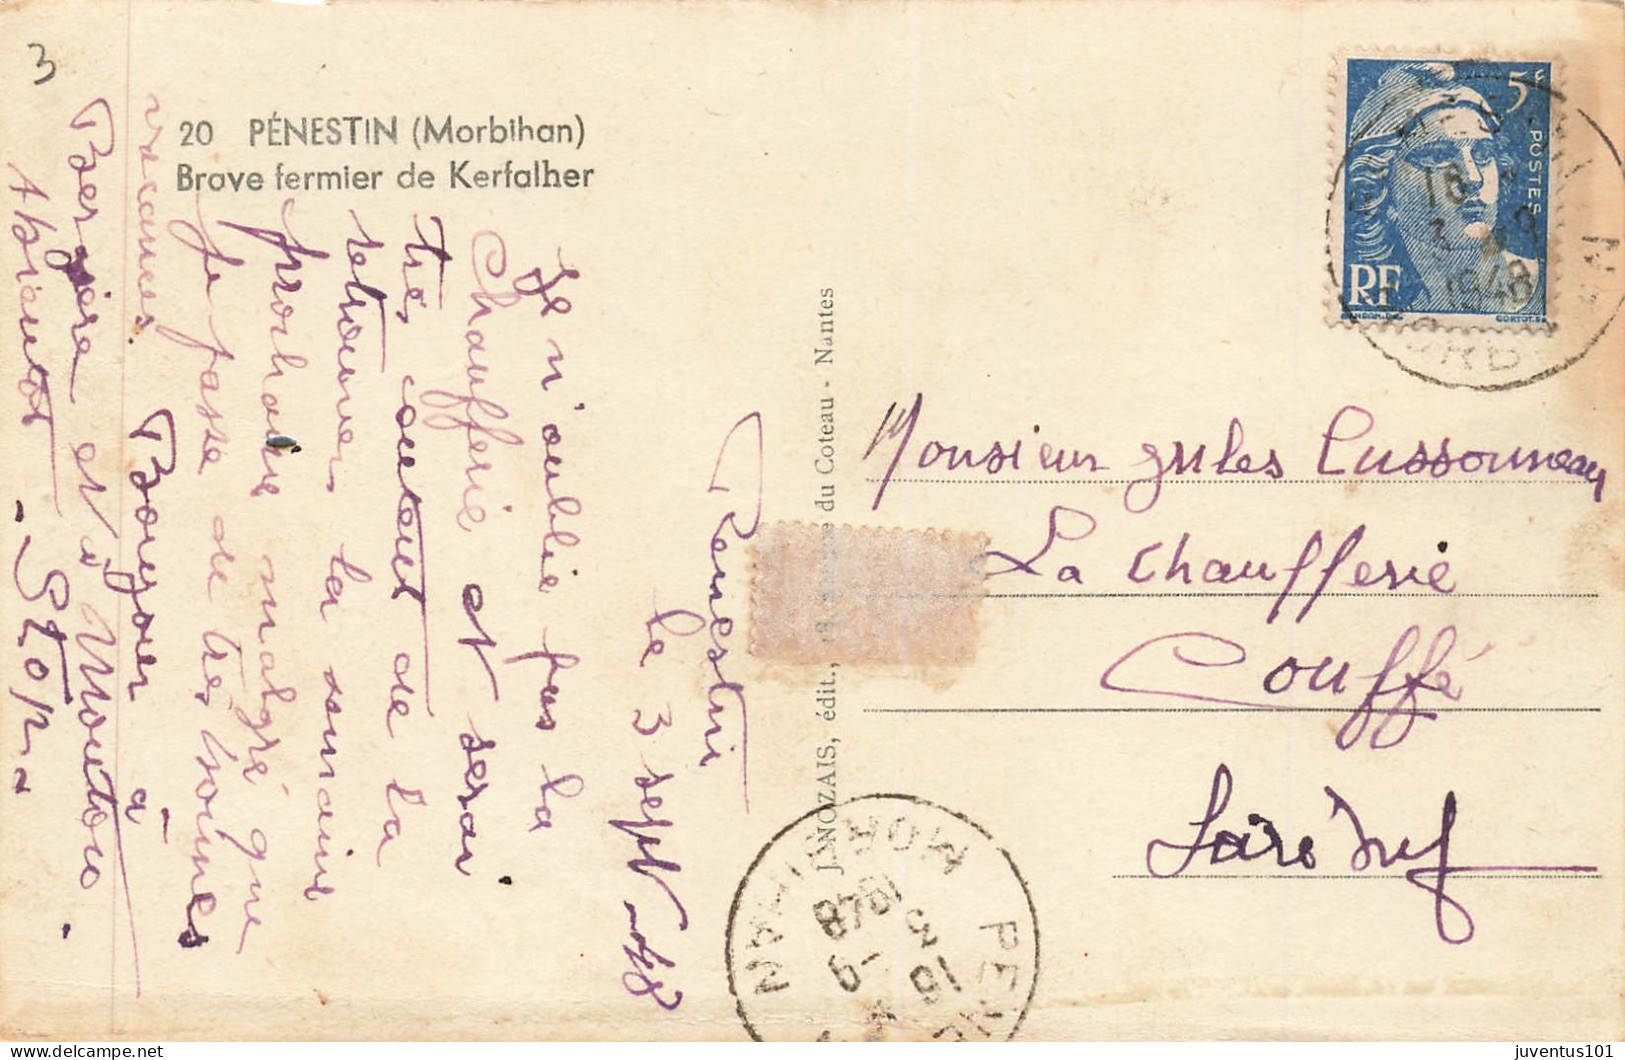 3
20 PÉNESTIN (Morbihan)
Brave fermier de Kerfalher
Penestin
le 3 sept. 48
Je n'oublie pas la
Chaufferie et serai
très content de la
retrouver la semaine
prochaine malgré que
je passe de très bonnes
vacances. Bonjour à
Bergère et à Moutou
A bientôt - Stop.
J. NOZAIS, édit., du Coteau - Nantes
5F
POSTES
RF
GANDON
CORTOT
18
3 - 9
1948
Monsieur Jules Lussonneau
La Chaufferie
Couffé
Loire Inf
MORBIHAN
16
3 - 9
1948
juventus101